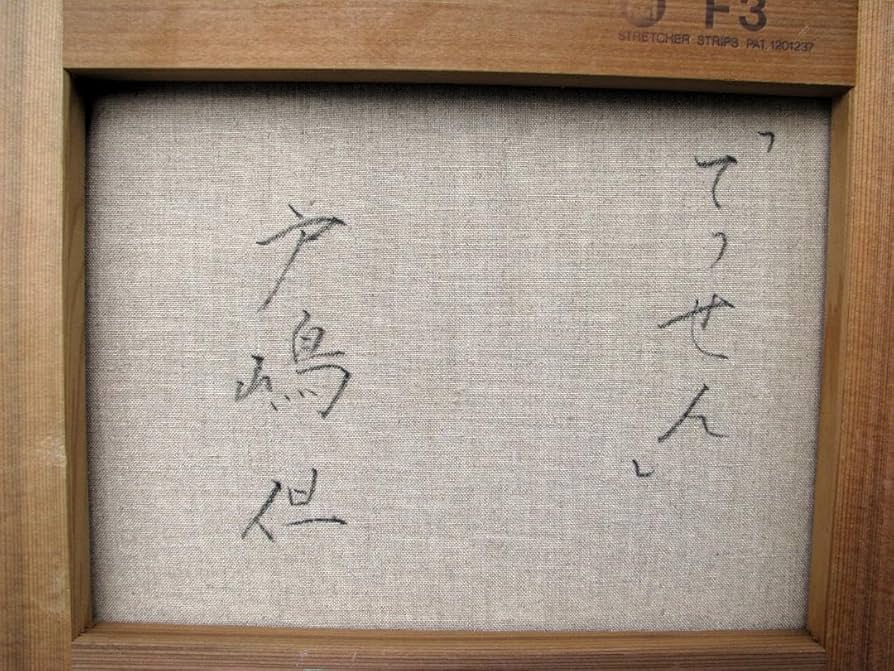 F3
STRETCHER STRIPS PAT. 1201237
「てっせん」
戸嶋 但